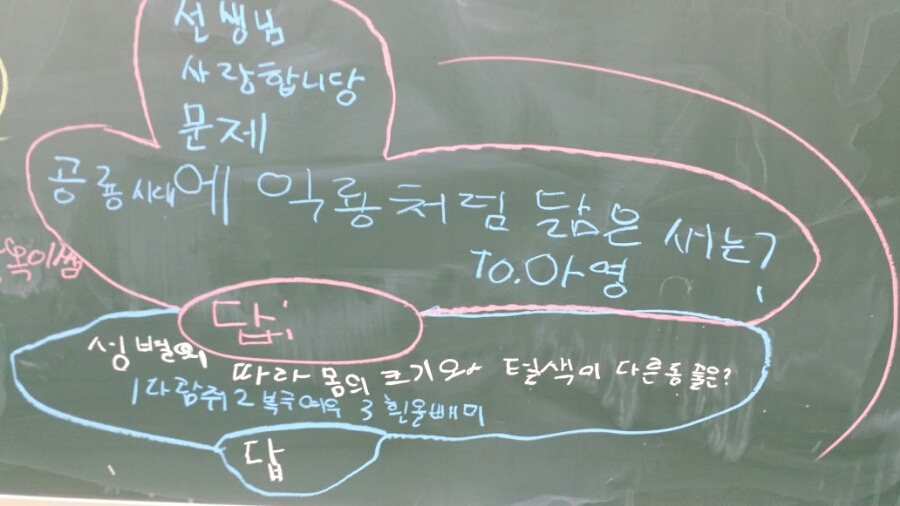 선생님
사랑합니당
문제
공룡시대에 익룡처럼 닮은 새는?
TO.아영
답:
성별의 따라 몸의 크기와 털색이 다른동물은?
1다람쥐 2북극여우 3흰올빼미
답